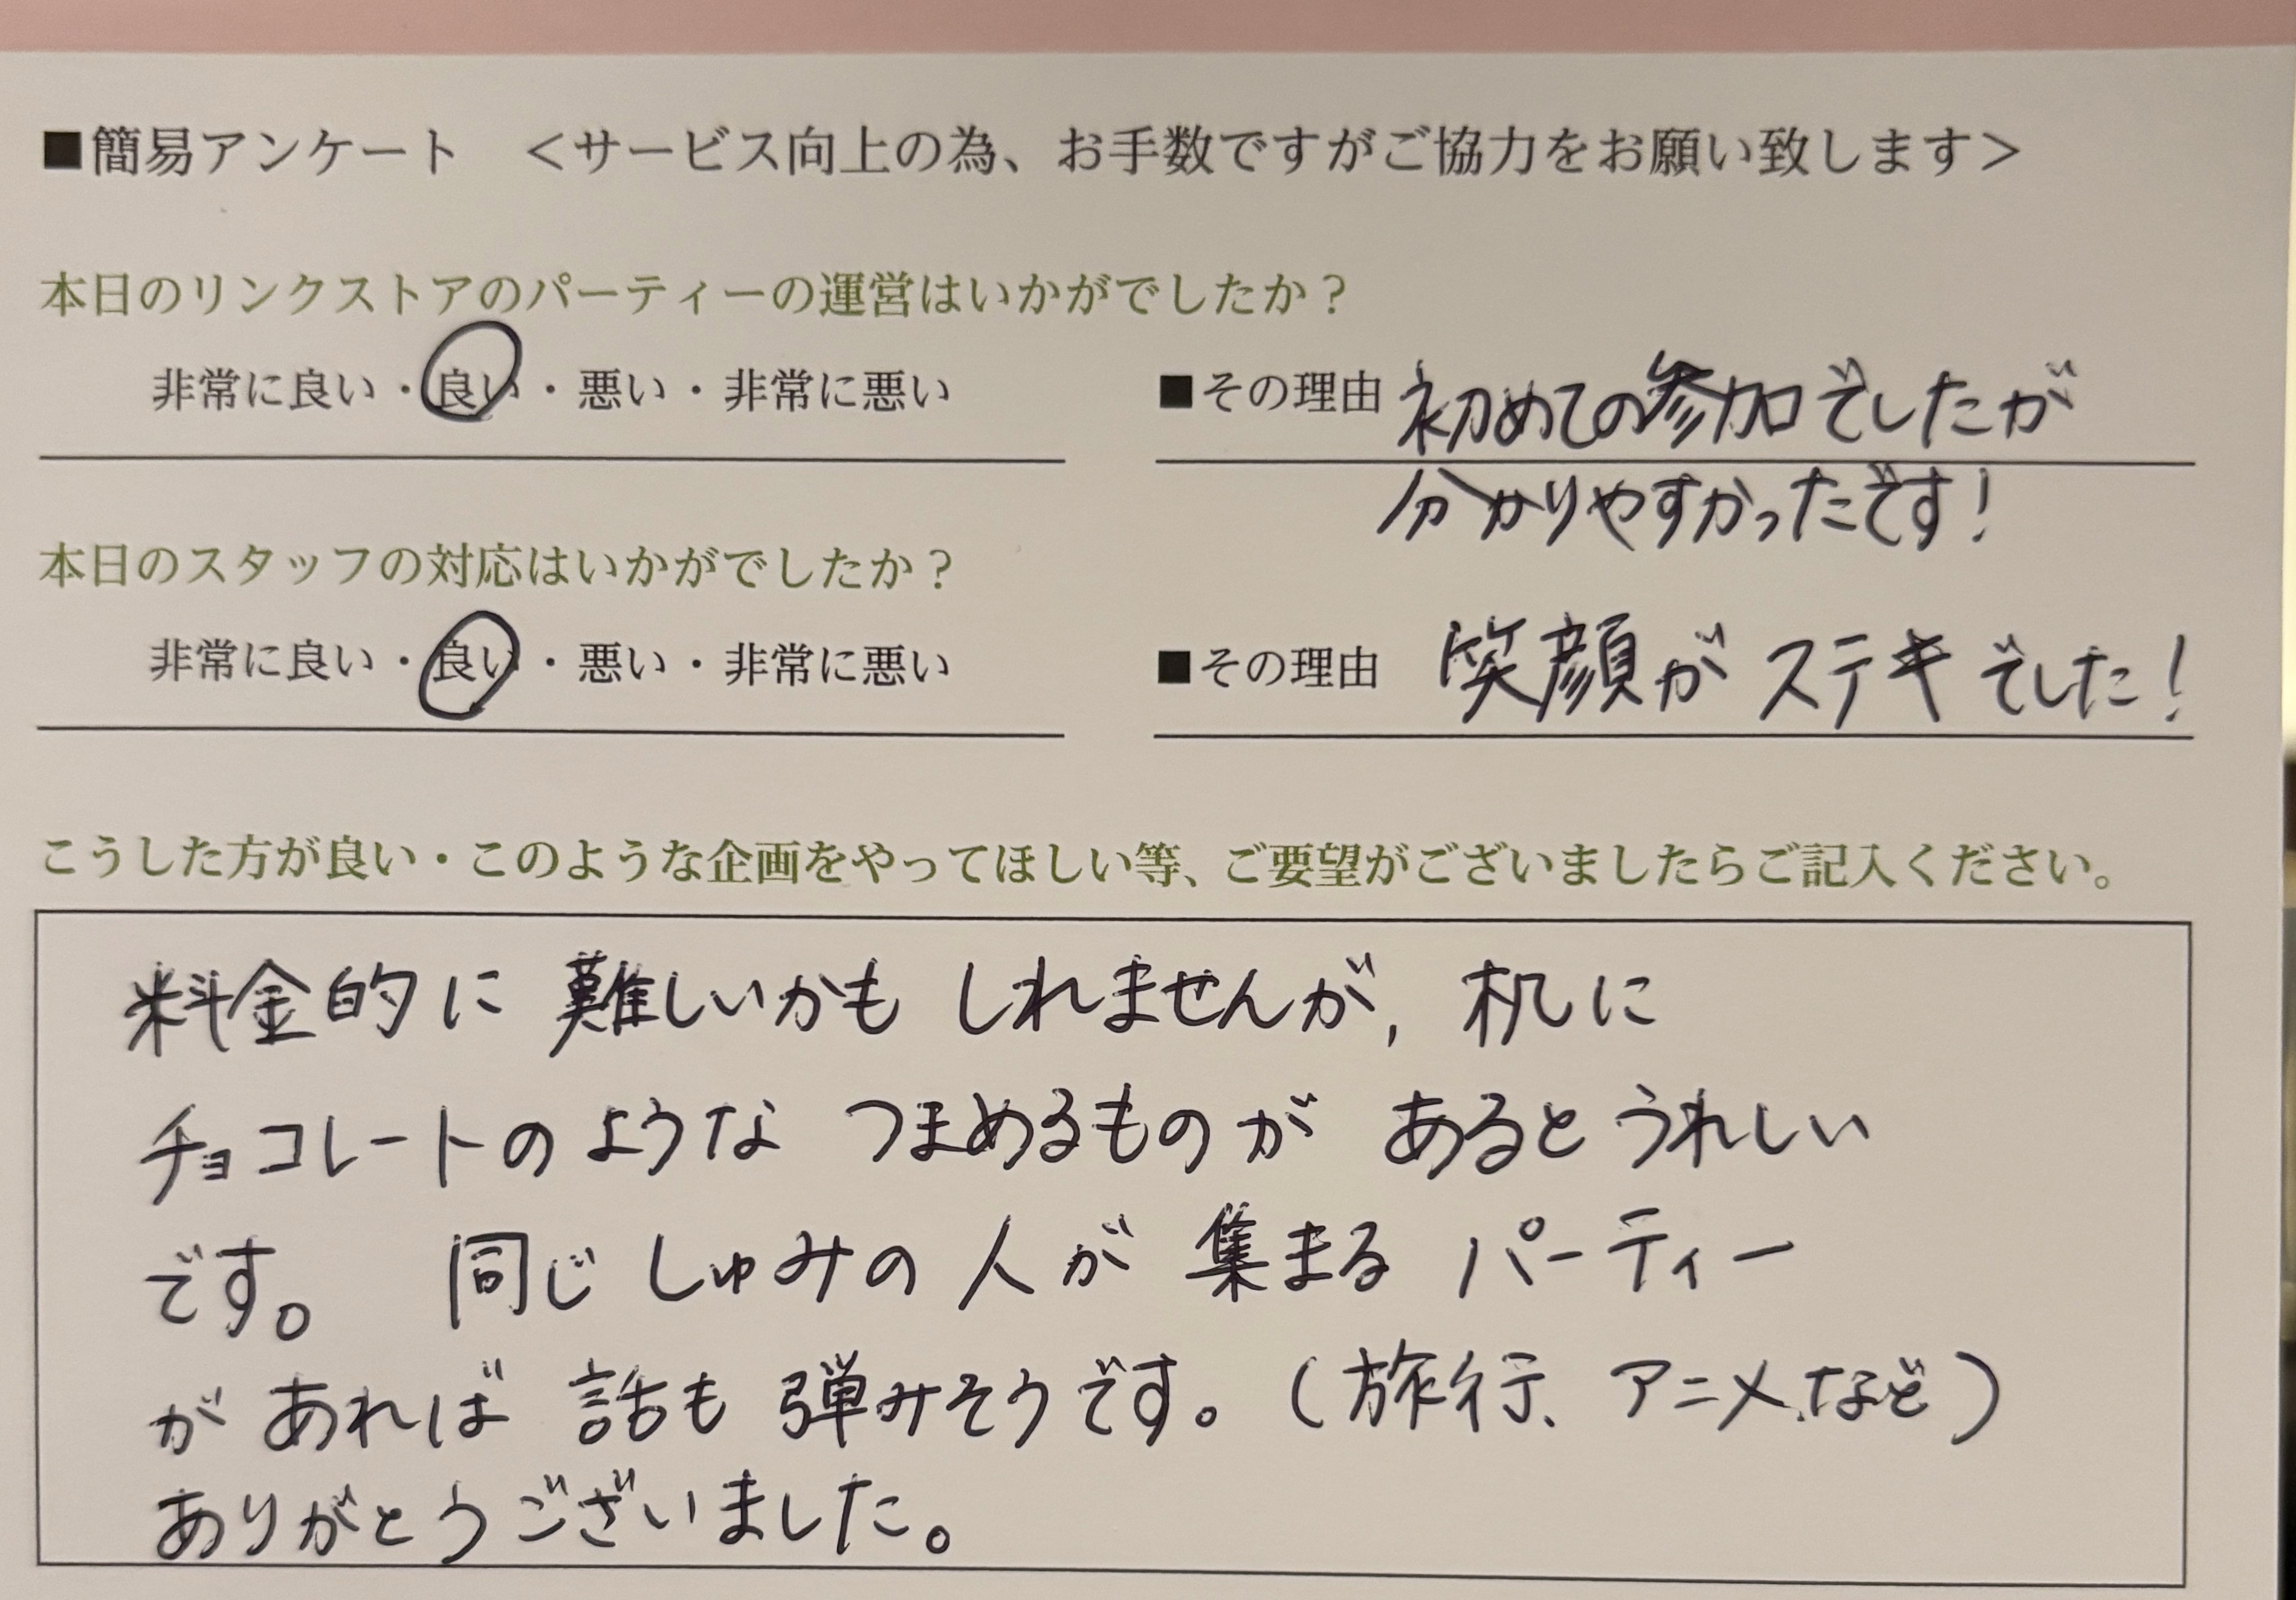 ■簡易アンケート　＜サービス向上の為、お手数ですがご協力をお願い致します＞
本日のリンクストアのパーティーの運営はいかがでしたか？
非常に良い・良い・悪い・非常に悪い
■その理由 初めての参加でしたが
分かりやすかったです！
本日のスタッフの対応はいかがでしたか？
非常に良い・良い・悪い・非常に悪い
■その理由 笑顔がステキでした！
こうした方が良い・このような企画をやってほしい等、ご要望がございましたらご記入ください。
料金的に難しいかもしれませんが、机に
チョコレートのようなつまめるものがあるとうれしい
です。 同じしゅみの人が集まるパーティー
があれば話も弾みそうです。（旅行、アニメ、など）
ありがとうございました。